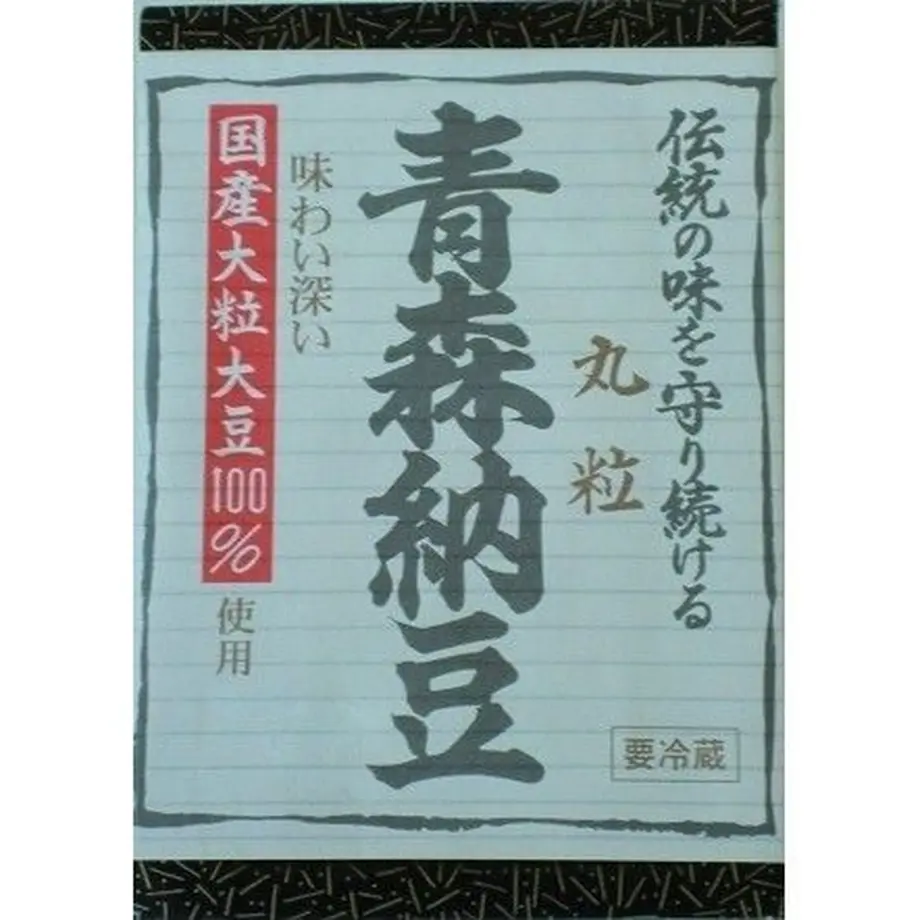 伝統の味を守り続ける
丸粒
青森納豆
味わい深い
国産大粒大豆100%
使用
要冷蔵